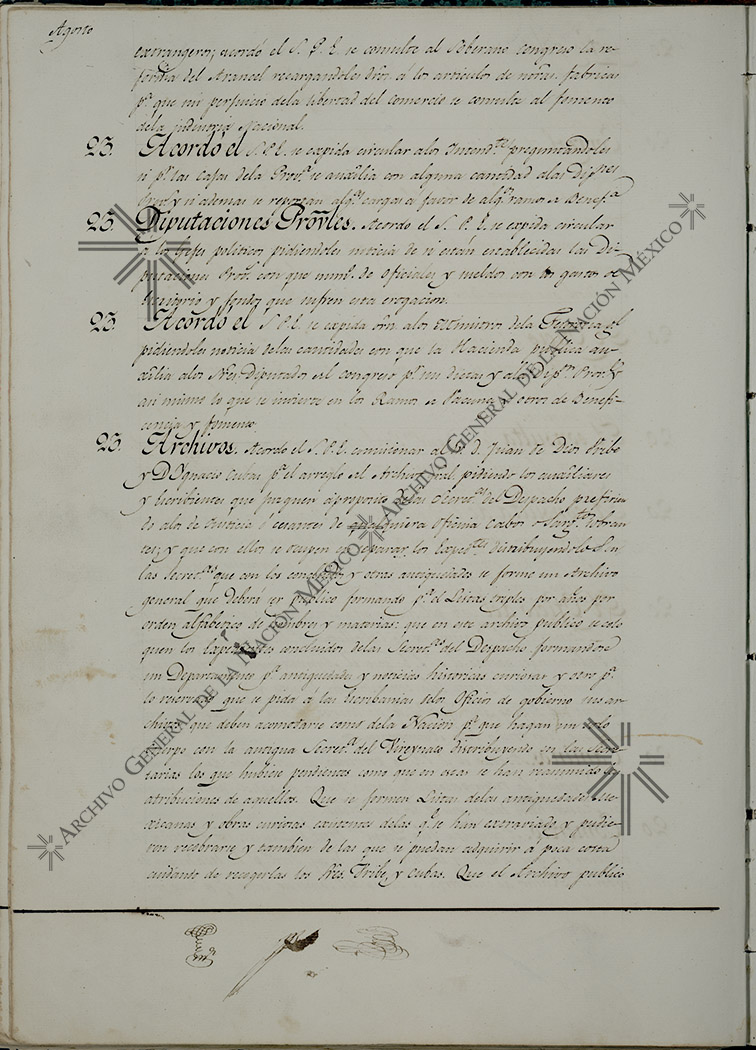 Agosto
extrangeros; acordó el S. P. E. se consulte al Soberano Congreso la re-
forma del Arancel recargandoles dros. á los articulos de nras. fabricas
pa. que sin perjuicio dela libertad del comercio se consulta al fomento
dela industria Nacional.
23. Acordó el S.P.E. se expida circular alos Intendtes. preguntandoles
si pr. las Cajas dela Prova. se auxilia con alguna cantidad alas Dipnes
Provs. y si ademas se reportan algs. cargas á favor de algs. ramos de Benefa.
23. Diputaciones Provles. Acordo el S. P. E. se expida circular
á los Gefes politicos pidiendoles noticia de si están establecidas las Di-
putaciones Provs. con que numo. de oficiales y sueldos con los gastos de
Escritorio y fondos que sufren esta erogacion.
23. Acordó el S. P. E. se expida orn. alos Ministros dela Tesora. gral
pidiendoles noticia delas cantidades con que la Hacienda publica au-
xilia alos Sres. Diputados del Congreso pr. sus dietas y alas Dipns. Provs. y
asi mismo lo que se invierte en los Ramos de Vacuna y otros de Benefi-
cencia y fomento.
23. Archivos. Acordo el S.P.E. comisionar al D. Juan de Dios Uribe
y D. Ygnacio Cubas pa. el arreglo del Archivo gral pidiendo los auxiliares
y Escribientes que juzguen aproposito delas Secretas. del Despacho prefirien-
do alos de Justicia ó cesantes de qualquiera oficina Cabos Sargtos.
y que con ellos se ocupen en separar los Expeds. distribuyendolos en
las Secretas. que con los concluidos y otras antiguedades se forme un Archivo
general que deberá ser publico formando pa. el Listas triples por años por
orden alfabetico de nombres y materias: que en este archivo publico se colo
quen los Expedientes concluidos delas Secretas. del Despacho formandose
un Departamento pa. antiguedades y noticias historicas curiosas y otro pa.
lo reservado que se pida á las Escribanias delos Oficios de gobierno sus ar-
chivos que deben acomodarse como dela Nacion pa. que hagan un solo
cuerpo con la antigua Secreta. del Vireynato distribuyendo en las Secre-
tarias los que hubiese pendientes como que en estas se han reasumido las
atribuciones de aquellos. Que se formen Listas delas antiguedades Me-
xicanas y obras curiosas existentes delas qe. se han extraviado y pudie-
ren recobrarse y tambien de las que se puedan adquirir á poca costa
cuidando de recogerlas los Sres. Uribe, y Cubas. Que el Archivo publico
ARCHIVO GENERAL DE LA NACIÓN MÉXICO
ARCHIVO GENERAL DE LA NACIÓN MÉXICO